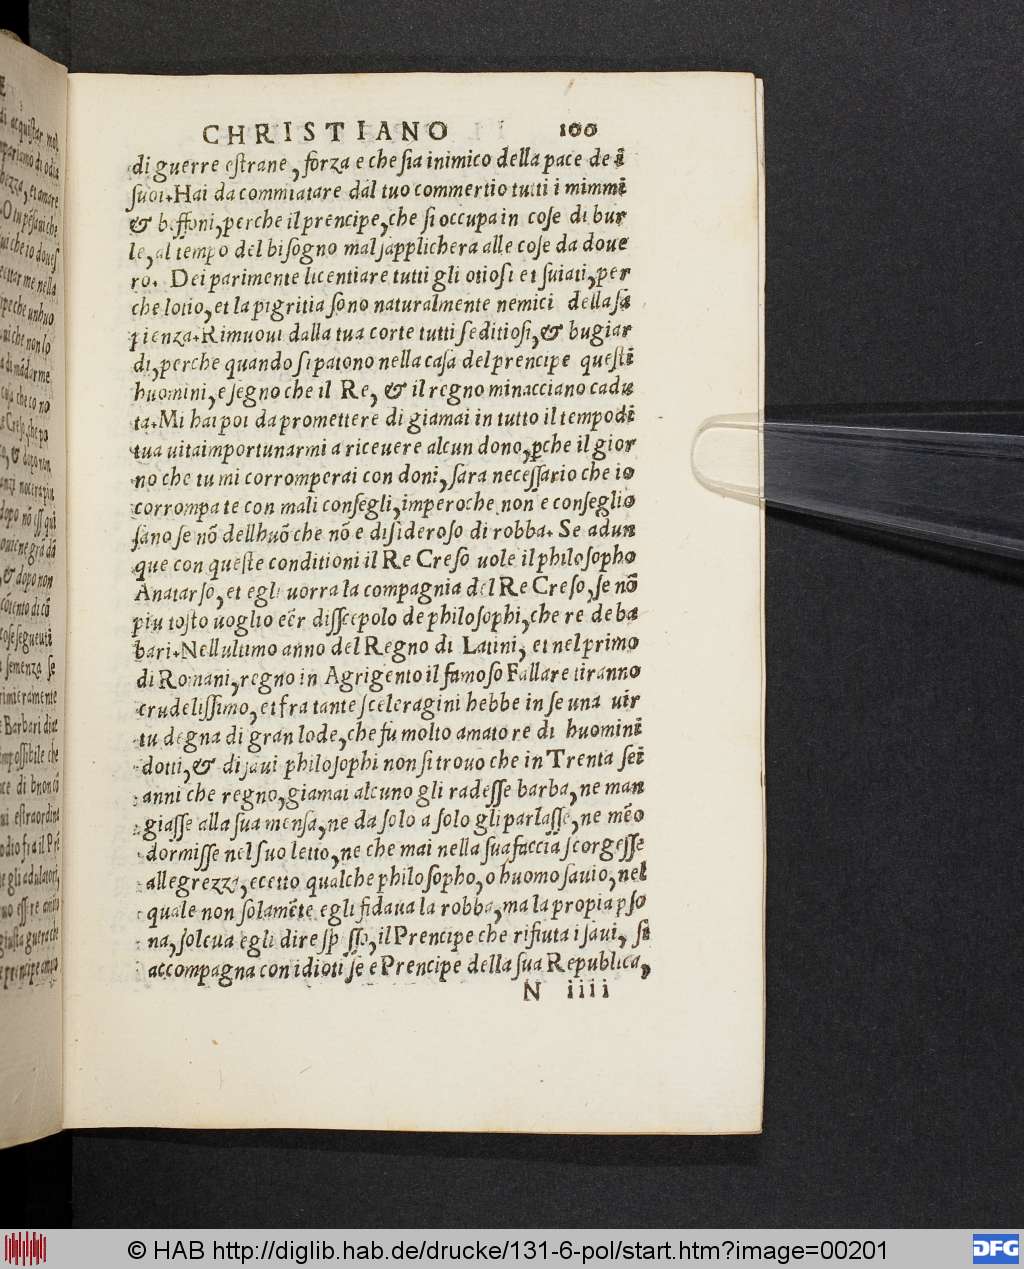 CHRISTIANO 100
di guerre estrane, forza e che sia inimico della pace de i
suoi. Hai da commiatare dal tuo commertio tutti i mimmi
& buffoni, perche il prencipe, che si occupa in cose di bur
le, al tempo del bisogno mal sapplichera alle cose da doue
ro. Dei parimente licentiare tutti gli otiosi et suiati, per
che lotio, et la pigritia sono naturalmente nemici della sa
pienza. Rimuoui dalla tua corte tutti seditiosi, & bugiar
di, perche quando si patono nella casa del prencipe questi
huomini, e segno che il Re, & il regno minacciano cadu
ta. Mi hai poi da promettere di giamai in tutto il tempo di
tua uita importunarmi a riceuere alcun dono, pche il gior
no che tu mi corromperai con doni, sara necessario che io
corrompa te con mali consegli, imperoche non e conseglio
sano se nō dell huō che nō e disideroso di robba. Se adun
que con queste conditioni il Re Creso uole il philosopho
Anatarso, et egli uorra la compagnia del Re Creso, se nō
piu tosto uoglio eēr disscepolo de philosophi, che re de ba
bari. Nell ultimo anno del Regno di Latini, et nel primo
di Romani, regno in Agrigento il famoso Fallare tiranno
crudelissimo, et fra tante sceleragini hebbe in se una uir
tu degna di gran lode, che fu molto amatore di huomini
dotti, & di saui philosophi non si trouo che in Trenta sei
anni che regno, giamai alcuno gli radesse barba, ne man
giasse alla sua mensa, ne da solo a solo gli parlasse, ne mēo
dormisse nel suo letto, ne che mai nella sua faccia scorgesse
allegrezza, ecetto qualche philosopho, o huomo sauio, nel
quale non solamēte egli fidaua la robba, ma la propia pso
na, soleua egli dire sp sso, il Prencipe che rifiuta i saui, si
accompagna con idioti se e Prencipe della sua Republica,
N iiii
© HAB http://diglib.hab.de/drucke/131-6-pol/start.htm?image=00201
DFG